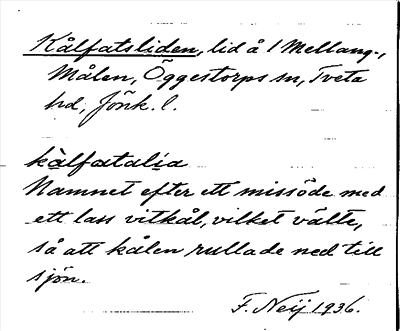 Kålfatsliden, lid å 1 Mellang.,
Målen, Öggestorps sn, Tveta
hd, Jönk. l.
kålfatalia
Namnet efter ett missöde med
ett lass vitkål, vilket välte,
så att kålen rullade ned till
sjön.
F. Neij 1936.